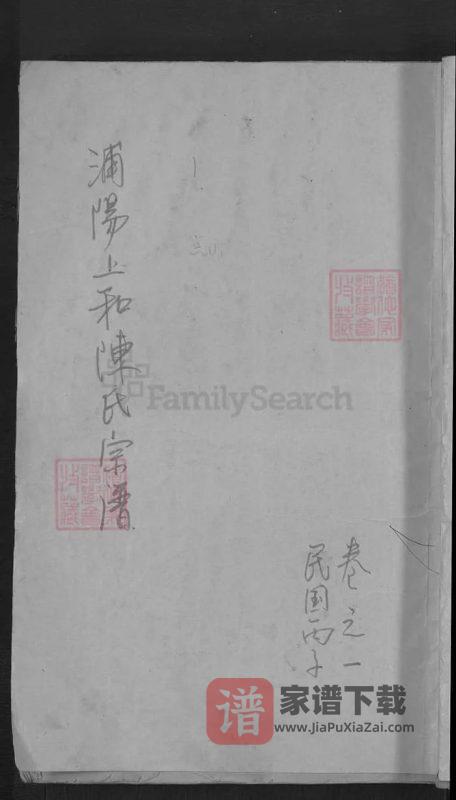 浦陽上和陳氏宗譜
卷之一
民国丙子
FamilySearch
谱 家谱下载
www.JiaPuXiaZai.com